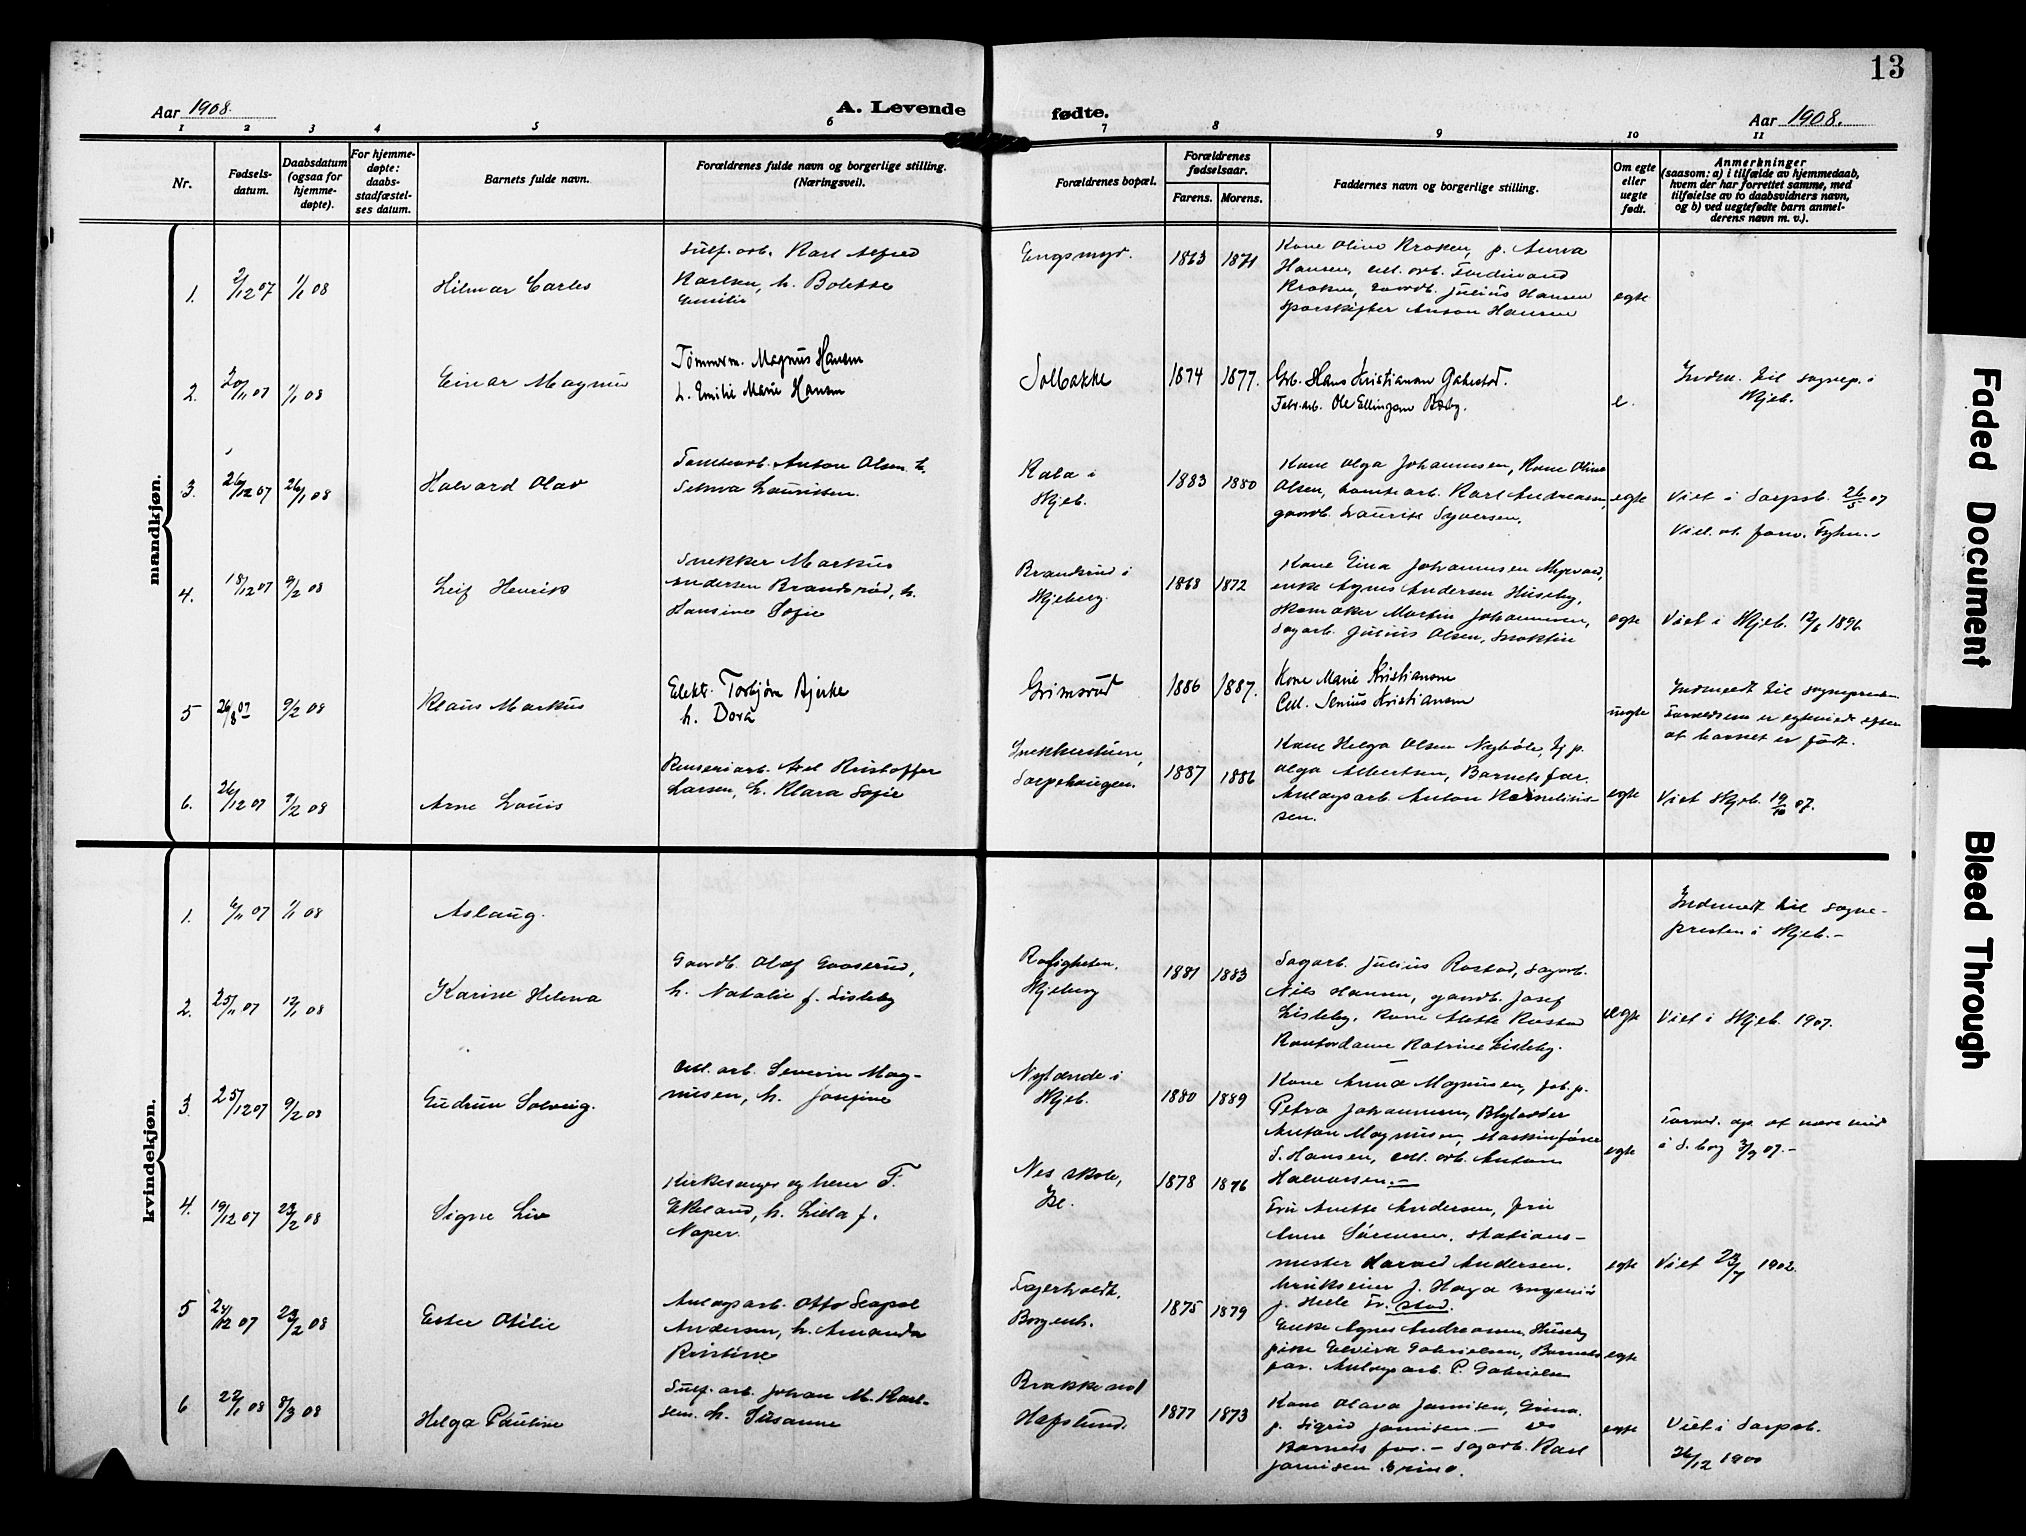 13
Aar 1908.
A. Levende fødte.
Aar 1908.
1 2 3 4 5 6 7 8 9 10 11
Nr.
Fødsels-
datum.
Daabsdatum
(ogsaa for
hjemme-
døpte).
For hjemme-
døpte:
daabs-
stadfæstel-
ses datum.
Barnets fulde navn.
Forældrenes fulde navn og borgerlige stilling.
(Næringsvei).
Forældrenes bopæl.
Forældrenes
fødselsaar.
Farens. Morens.
Faddernes navn og borgerlige stilling.
Om egte
eller
uegte
født.
Anmerkninger
(saasom: a) i tilfælde av hjemmedaab,
hvem der har forrettet samme, med
tilføielse av to daabsvidners navn,
og b) ved uegtefødte barn anmel-
derens navn m. v.).
mandkjøn.
1. 2/12 07 1/1 08 Hilmar Carles
Sulf. arb. Karl Alfred
Karlsen, h. Bolette
Emilie
Engsmyr. 1863 1871
Kone Oline Kroken, p. Anna
Hansen, cell. arb. Ferdinand
Kroken, gaardb. Julius Hansen
Sporskifter Anton Hansen
egte
2. 30/11 07 1/1 08 Einar Magnus
Tømmerm. Magnus Hansen
h. Emilie Marie Hansen
Solbakke 1874 1877.
Grb. Hans Kristiansen
Fabr. arb. Ole Ellingsen
e.
Indm. til sognep. i
Skjeb.
3. 26/12 07 26/1 08 Halvard Olav
Tomtearb. Anton Olsen h.
Selma Lauritsen.
Kala i
Skjeb.
1883 1880
Kone Olga Johannesen, Kone Oline
Olsen, tomtearb. Karl Andreasen,
gaardb. Laurits Syversen.
egte
Viet i Sarpsb. 26/5 07
Viet. at. forv.
4. 18/12 07 9/2 08 Leif Henrik
Snekker Markus
Andersen Brandsrød, h.
Hansine Sofie
Brandsrud i
Skjeberg.
1868 1872
Kone Lina Johannesen Myrvold,
enke Agnes Andersen Huseby,
skomaker Martin Johannesen,
Sagarb. Julius Olsen,
egte
Viet i Skjeb. 12/6 1896
5 26/8 07 9/2 08 Klaus Markus
Elektr. Torbjørn Bjerke
h. Dora
Grimsrud 1886 1887.
Kone Marie Kristiansen
Cell. Senius Kristiansen
uegte
Indmeldt til sognepresten
Forældrene er egteviet efter
at barnet er født.
6. 26/12 07 9/2 08 Arne Louis
Renseriarb. Axel Kristoffer
Larsen, h. Klara Sofie
Snekkerstuen,
Sarpehaugen.
1887 1886
Kone Helga Olsen Nybøle, tj. p.
Olga Albertsen, Barnets far.
Anlægsarb. Anton Kornelius-
sen.
egte
Viet Skjeb. 19/10 07.
kvindekjøn.
1. 6/11 07 1/1 08 Aslaug.
Indmeldt til sogne-
presten i Skjeb.-
2. 25/11 07 12/1 08 Karine Helena
Gaardb. Olaf Gaaserud,
h. Natalie f. Lisleby
Roligheten.
Skjeberg
1881 1883
Sagarb. Julius Rostad, sagarb.
Nils Hansen, gaardb. Josef
Lisleby, Kone Mette Rostad
Kontordame Katrine Lisleby.
egte
Viet i Skjeb. 1907.
3. 25/12 07 9/2 08 Gudrun Solveig.
Cell. arb. Severin Mag-
nusen, h. Josefine
Nylænde i
Skjeb.
1880 1889
Kone Anna Magnusen, fab. p.
Petra Johannesen, Blylodder
Anton Magnusen, Maskinfører
S. Hansen, cell. arb. Anton
Halvorsen.-
egte
Forænd. op. at være viet
i S.borg 3/9 07.-
4. 19/12 07 23/2 08 Signe Liv
Kirkesanger og lærer F.
Ekeland, h. Lilla f.
Naper.
Nes skole,
Id.
1878 1876
Fru Anette Andersen, fru
Anne Sørensen, stations-
mester Harald Andersen.
bruksseier J. Haga ingeniør
J. Hiele Fr.stad.
egte
Viet 23/7 1902.
5 24/12 07 23/2 08 Ester Otilie
Anlægsarb. Otto Leopol
Andersen, h. Amanda
Kristine
Fagerholdt,
Borgenh.
1875 1879
Enke Agnes Andreasen, Huseby
pike Elvira Gabrielsen, Barnets
far. Anlægsarb. P. Gabrielsen
egte
6 22/1 08 8/3 08 Helga Pauline
Sulf. arb. Johan M. Karl-
sen. h. Susanne
Brakke ved
Hafslund.
1877 1873
Kone Olava Jonnisen, Grina.
p. Sigrid Jonnisen - do
Barnets far. - Sagarb. Karl
Jonnisen Grina.
egte
Viet i Sarpsb.
26/12 1900
Faded Document
Bleed Through